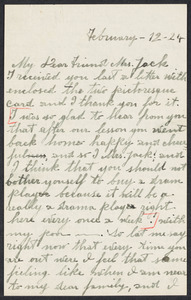 February - 12 - 24
My Dear Friend Mrs. Jack
I received you last letter with
enclosed the two picturesque
card and I thank you for it.
I was so glad to hear from you
that after our lesson you went
back home happy and cheer
and so I Mrs. Jack! and
I think that you should not
bother yourself to bring a drama
player because it will be a
really a drama player right
here every once a week. I wish
my poor — So let me say
right now that every time you
are out were I feel that same
feeling like when I am near
to my dear family, and I